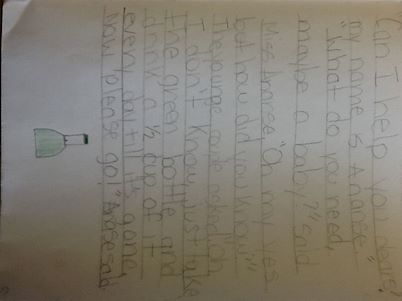 Can I help you dears?
my name is Ananse,"
"What do you need,
maybe a baby?" said
Miss Ananse, "Oh my yes
but how did you know?"
The younge couple asked "Oh
I don't know, just take
the green bottle and
drink a ½ cup of it
every day till it's gone,
now please go!" Ananse said